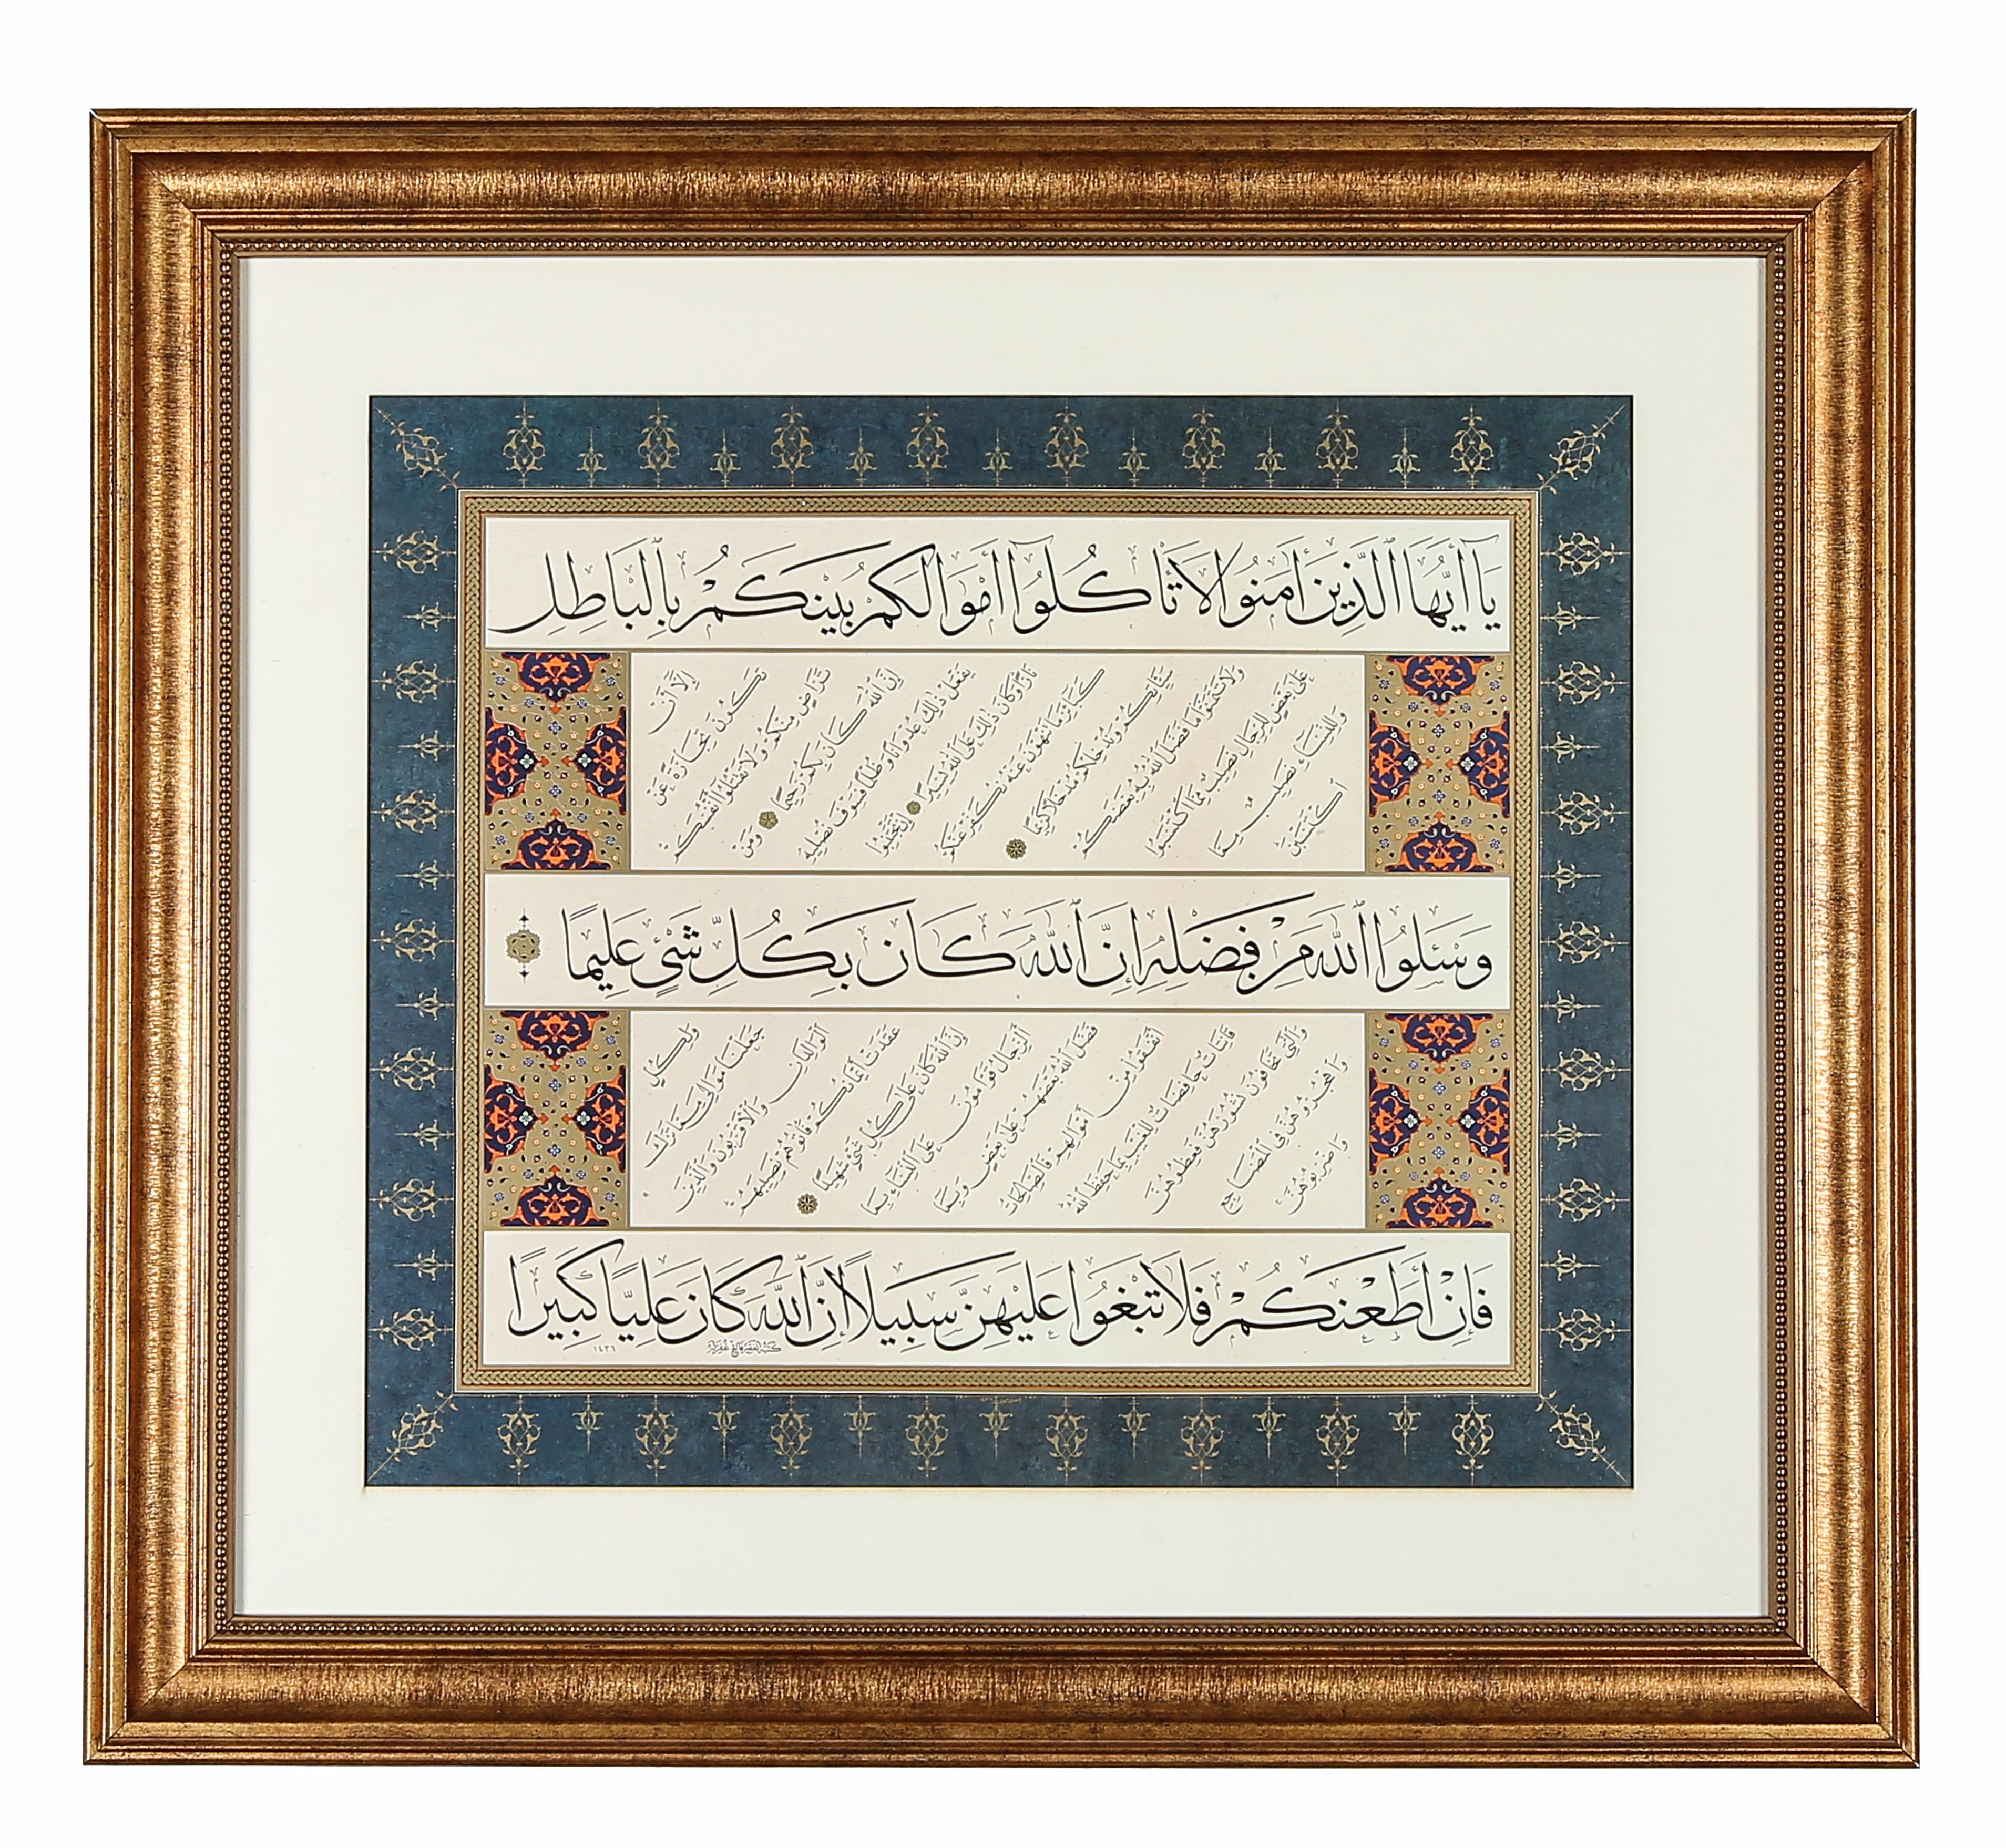 يَا أَيُّهَا الَّذِينَ أٰمَنُوا لَا تَأْكُلُوا أَمْوَالَكُمْ بَيْنَكُمْ بِالْبَاطِلِ
إِلَّا أَنْ
تَكُونَ تِجَارَةً عَنْ
تَرَاضٍ مِنْكُمْ وَلَا تَقْتُلُوا أَنْفُسَكُمْ
إِنَّ اللهَ كَانَ بِكُمْ رَحِيمًا وَمَنْ
يَفْعَلْ ذٰلِكَ عُدْوَانًا وَظُلْمًا فَسَوْفَ نُصْلِيهِ
نَارًا وَكَانَ ذٰلِكَ عَلَى اللهِ يَسِيرًا إِنْ تَجْتَنِبُوا
كَبَائِرَ مَا تُنْهَوْنَ عَنْهُ نُكَفِّرْ عَنْكُمْ
سَيِّئَاتِكُمْ وَنُدْخِلْكُمْ مُدْخَلًا كَرِيمًا
وَلَا تَتَمَنَّوْا مَا فَضَّلَ اللهُ بِهِ بَعْضَكُمْ
عَلَى بَعْضٍ لِلرِّجَالِ نَصِيبٌ مِمَّا اكْتَسَبُوا
وَلِلنِّسَاءِ نَصِيبٌ مِمَّا
اكْتَسَبْنَ
وَسْئَلُوا اللهَ مِنْ فَضْلِهِ إِنَّ اللهَ كَانَ بِكُلِّ شَيْءٍ عَلِيمًا
وَلِكُلٍّ
جَعَلْنَا مَوَالِيَ مِمَّا تَرَكَ
الْوَالِدَانِ وَالْأَقْرَبُونَ وَالَّذِينَ
عَقَدَتْ أَيْمَانُكُمْ فَأٰتُوهُمْ نَصِيبَهُمْ
إِنَّ اللهَ كَانَ عَلَى كُلِّ شَيْءٍ شَهِيدًا
الرِّجَالُ قَوَّامُونَ عَلَى النِّسَاءِ بِمَا
فَضَّلَ اللهُ بَعْضَهُمْ عَلَى بَعْضٍ وَبِمَا
أَنْفَقُوا مِنْ أَمْوَالِهِمْ فَالصَّالِحَاتُ
قَانِتَاتٌ حَافِظَاتٌ لِلْغَيْبِ بِمَا حَفِظَ اللهُ
وَالّٰتِي تَخَافُونَ نُشُوزَهُنَّ فَعِظُوهُنَّ
وَاهْجُرُوهُنَّ فِي الْمَضَاجِعِ
وَاضْرِبُوهُنَّ
فَإِنْ أَطَعْنَكُمْ فَلَا تَبْغُوا عَلَيْهِنَّ سَبِيلًا إِنَّ اللهَ كَانَ عَلِيًّا كَبِيرًا
كتبه الفقير ١٤٣٦